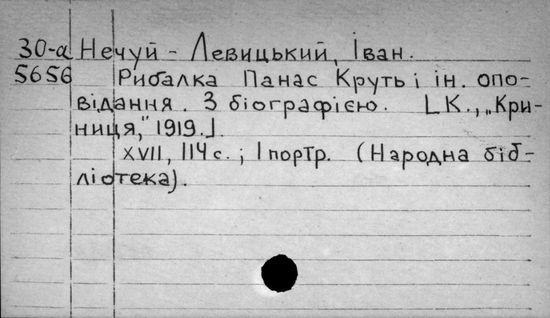 30-а Нечуй - Левицький, Іван.
5656 Рибалка Панас Круть і ін. опо-
відання. З біографією. [К., „Кри-
ниця,” 1919.].
XVII, 114 с.; 1 портр. (Народна біб-
ліотека).